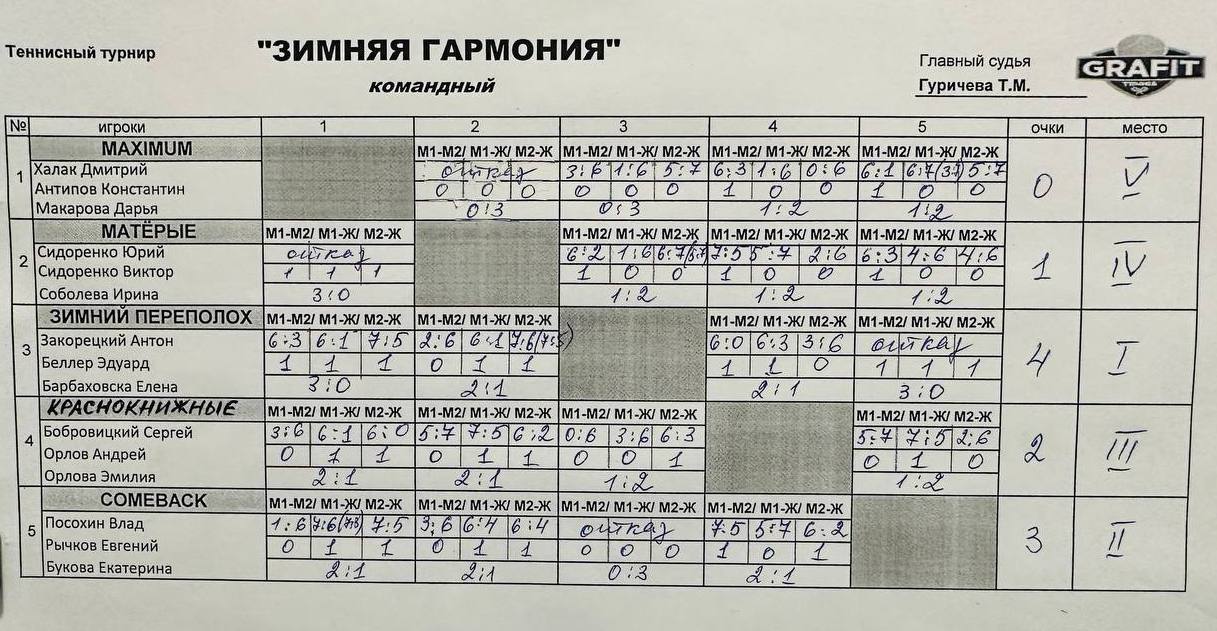 Теннисный турнир
"ЗИМНЯЯ ГАРМОНИЯ"
командный
Главный судья
Гуричева Т.М.
GRAFIT
№ игроки 1 2 3 4 5 очки место
MAXIMUM М1-М2/ М1-Ж/ М2-Ж М1-М2/ М1-Ж/ М2-Ж М1-М2/ М1-Ж/ М2-Ж М1-М2/ М1-Ж/ М2-Ж
1 Халак Дмитрий отказ 3:6 1:6 5:7 6:3 1:6 0:6 6:1 6:7(3:7) 5:7 0 V
Антипов Константин 0 0 0 0 0 0 1 0 0 1 0 0
Макарова Дарья 0:3 0:3 1:2 1:2
МАТЁРЫЕ М1-М2/ М1-Ж/ М2-Ж М1-М2/ М1-Ж/ М2-Ж М1-М2/ М1-Ж/ М2-Ж М1-М2/ М1-Ж/ М2-Ж
2 Сидоренко Юрий отказ 6:2 1:6 6:7(5:7) 7:5 5:7 2:6 6:3 4:6 4:6 1 IV
Сидоренко Виктор 1 1 1 1 0 0 1 0 0 1 0 0
Соболева Ирина 3:0 1:2 1:2 1:2
ЗИМНИЙ ПЕРЕПОЛОХ М1-М2/ М1-Ж/ М2-Ж М1-М2/ М1-Ж/ М2-Ж М1-М2/ М1-Ж/ М2-Ж М1-М2/ М1-Ж/ М2-Ж
3 Закорецкий Антон 6:3 6:1 7:5 2:6 6:1 7:6(7:5) 6:0 6:3 3:6 отказ 4 I
Беллер Эдуард 1 1 1 0 1 1 1 1 0 1 1 1
Барбаховска Елена 3:0 2:1 2:1 3:0
КРАСНОКНИЖНЫЕ М1-М2/ М1-Ж/ М2-Ж М1-М2/ М1-Ж/ М2-Ж М1-М2/ М1-Ж/ М2-Ж М1-М2/ М1-Ж/ М2-Ж
4 Бобровицкий Сергей 3:6 6:1 6:0 5:7 7:5 6:2 0:6 3:6 6:3 5:7 7:5 2:6 2 III
Орлов Андрей 0 1 1 0 1 1 0 0 1 0 1 0
Орлова Эмилия 2:1 2:1 1:2 1:2
COMEBACK М1-М2/ М1-Ж/ М2-Ж М1-М2/ М1-Ж/ М2-Ж М1-М2/ М1-Ж/ М2-Ж М1-М2/ М1-Ж/ М2-Ж
5 Посохин Влад 1:6 7:6(7:3) 7:5 3:6 6:4 6:4 отказ 7:5 5:7 6:2 3 II
Рычков Евгений 0 1 1 0 1 1 0 0 0 1 0 1
Букова Екатерина 2:1 2:1 0:3 2:1